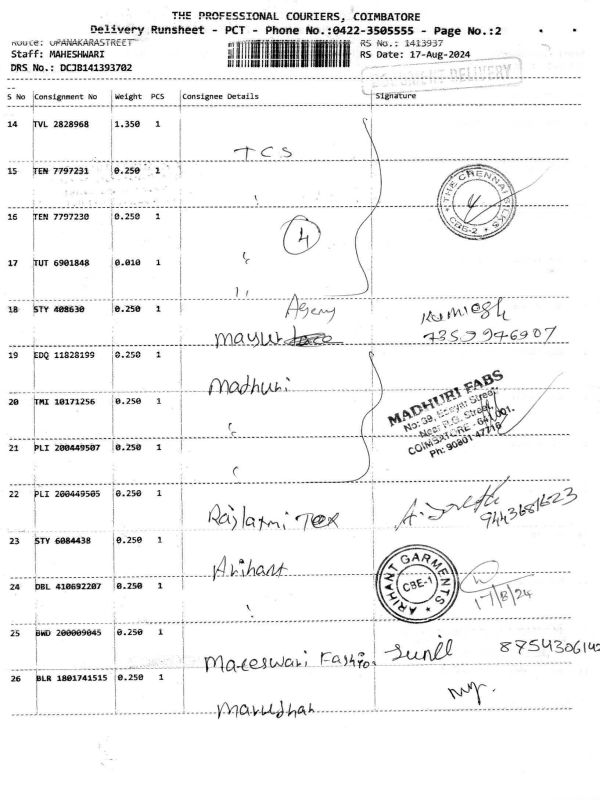 THE PROFESSIONAL COURIERS, COIMBATORE
Delivery Runsheet - PCT - Phone No.:0422-3505555 - Page No.:2
Route: UPANAKARASTREET RS No.: 1413937
Staff: MAHESHWARI RS Date: 17-Aug-2024
DRS No.: DCJB141393702
S No Consignment No Weight PCS Consignee Details Signature
14 TVL 2828968 1.350 1
TCS
15 TEN 7797231 0.250 1
THE CHENNAI SILKS
CBE-2
16 TEN 7797230 0.250 1
4
17 TUT 6901848 0.010 1
18 STY 408630 0.250 1
Agency
Mayur
19 EDQ 11828199 0.250 1
Madhuri
MADHURI FABS
Street,
Near R.G. Street,
COIMBATORE - 641 001.
Ph: 90801 47718
20 TMI 10171256 0.250 1
21 PLI 200449507 0.250 1
22 PLI 200449505 0.250 1
Rajlaxmi Tex
9443681623
23 STY 6084438 0.250 1
Arihant
ARIHANT GARMENTS
CBE-1
17/8/24
24 DBL 410692207 0.250 1
25 BWD 200009045 0.250 1
Maheswari Fashion Sunil
26 BLR 1801741515 0.250 1
Marudhar